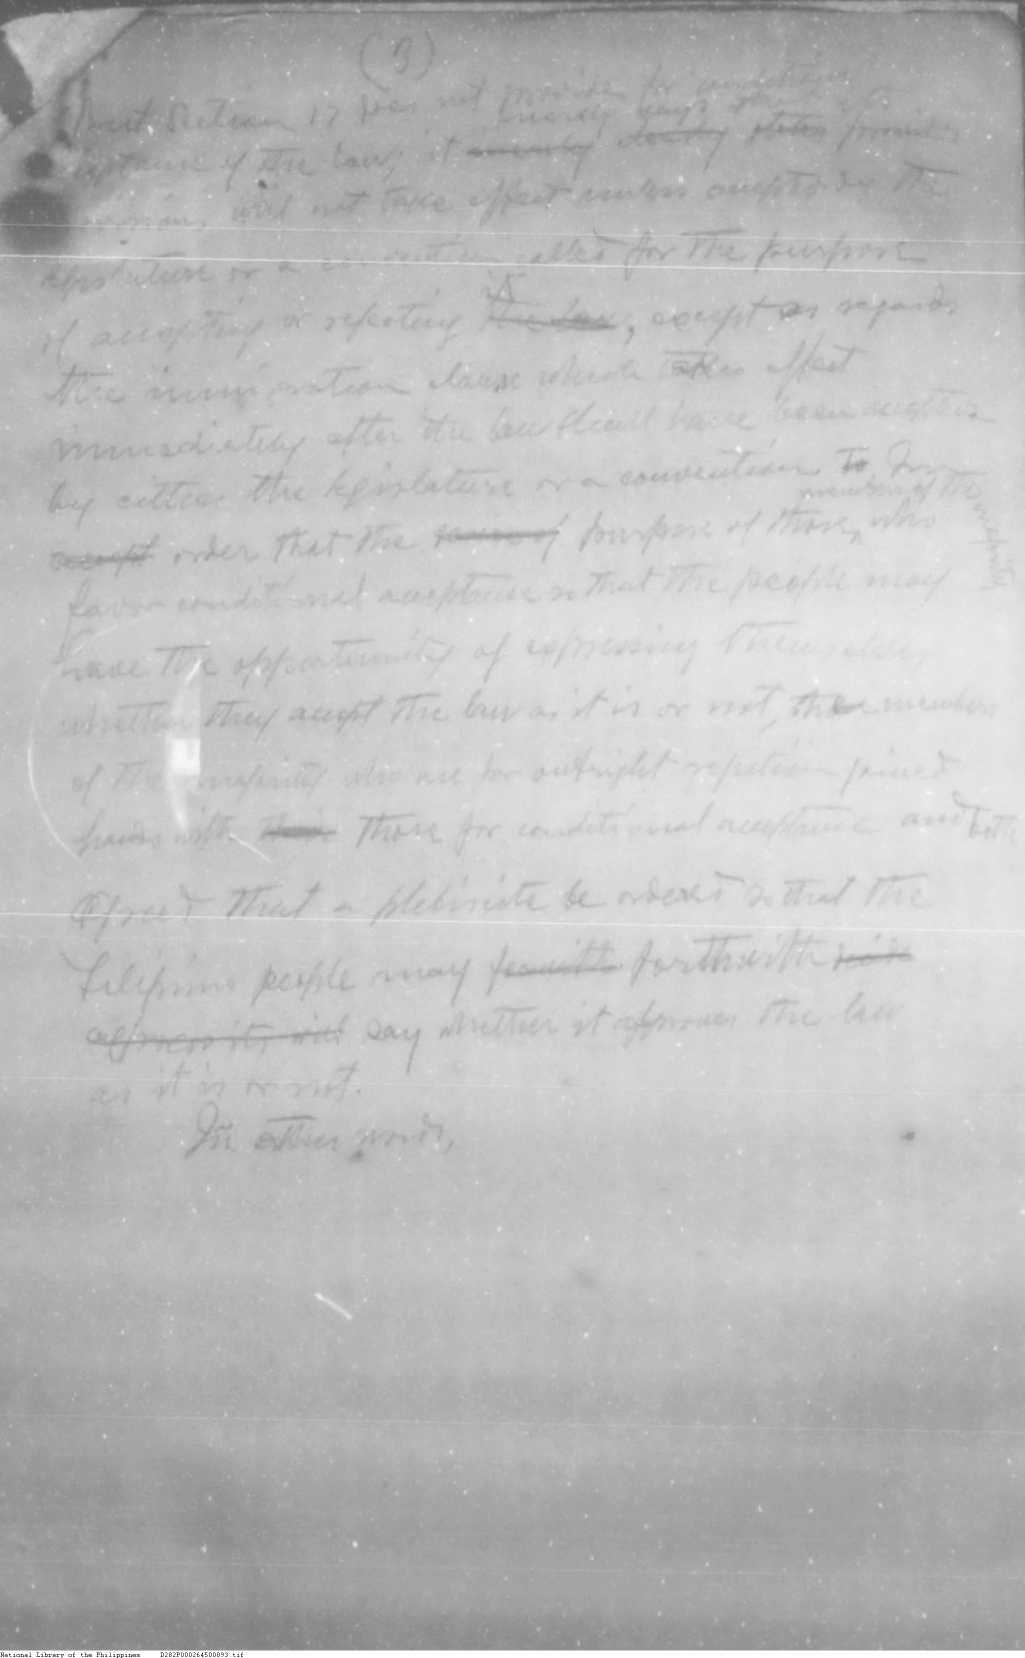 (3)
But Section 17 does not provide for conditional
acceptance of the law; it merely says that
provisions, will not take effect unless accepted by the
legislature or a convention called for the purpose
of accepting or rejecting the law it, except as regards
the immigration clause which takes effect
immediately after the law shall have been accepted
by either the legislature or a convention. To
except order that the purpose of those, members of the minority who
favor conditional acceptance so that the people may
have the opportunity of expressing themselves,
whether they accept the law as it is or not, the members
of the majority who are for outright rejection joined
hands with those for conditional acceptance and both
agreed that a plebiscite be ordered so that the
Filipino people may forthwith
say whether it approves the law
as it is or not.
In other words,
National Library of the Philippines D282P000264500893.tif